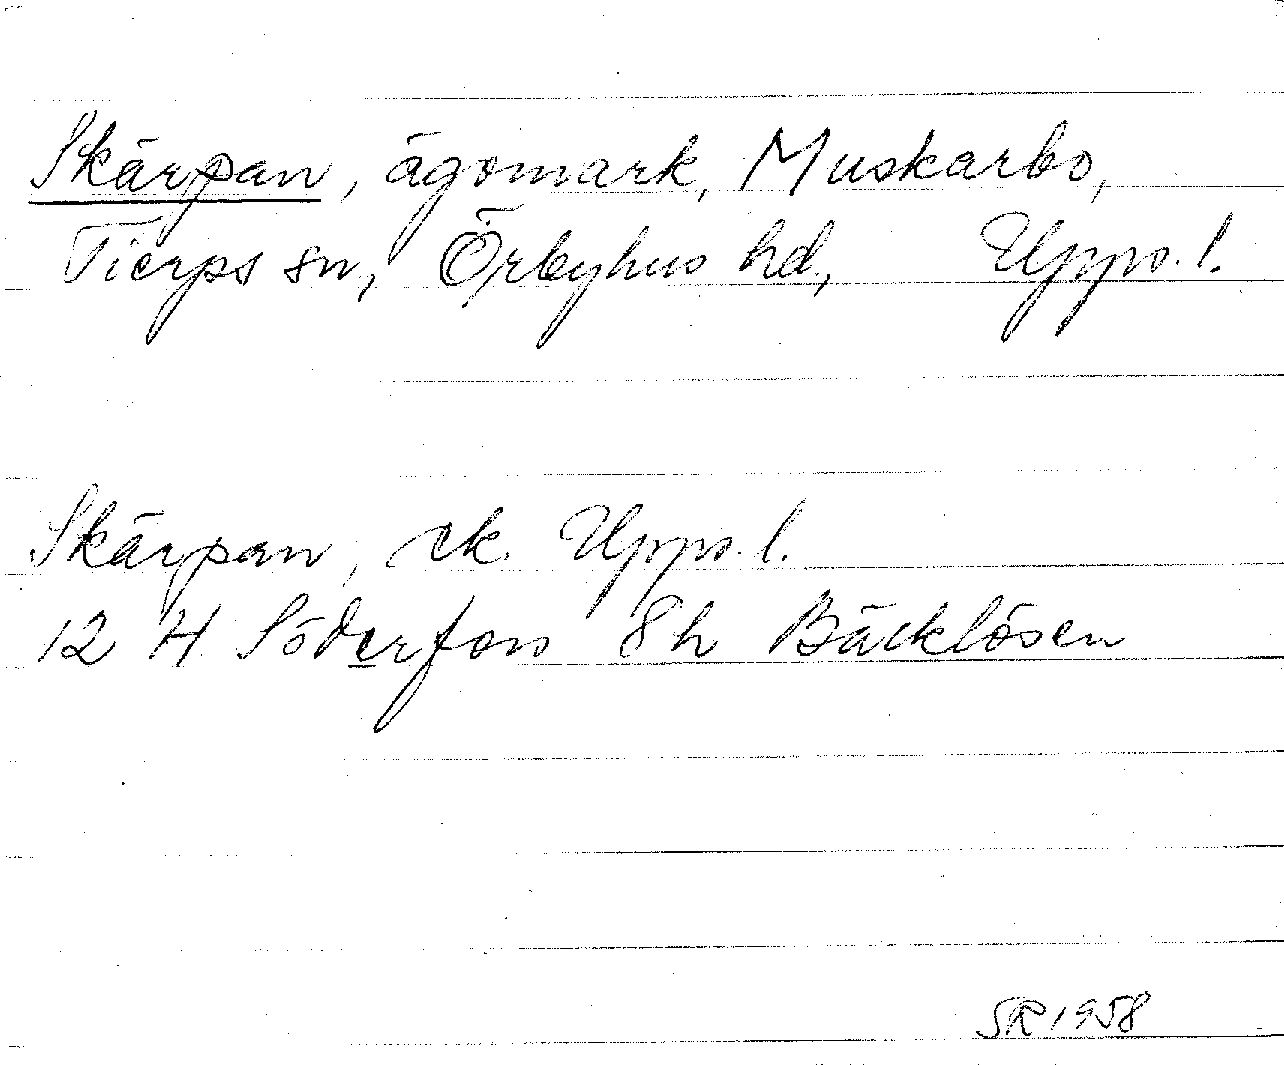 Skärpan, ägomark, Muskarbo,
Tierps sn, Örbyhus hd, Upps. l.
Skärpan, ek. Upps. l.
12 H Söderfors 8 h Bäcklösen
SR 1958